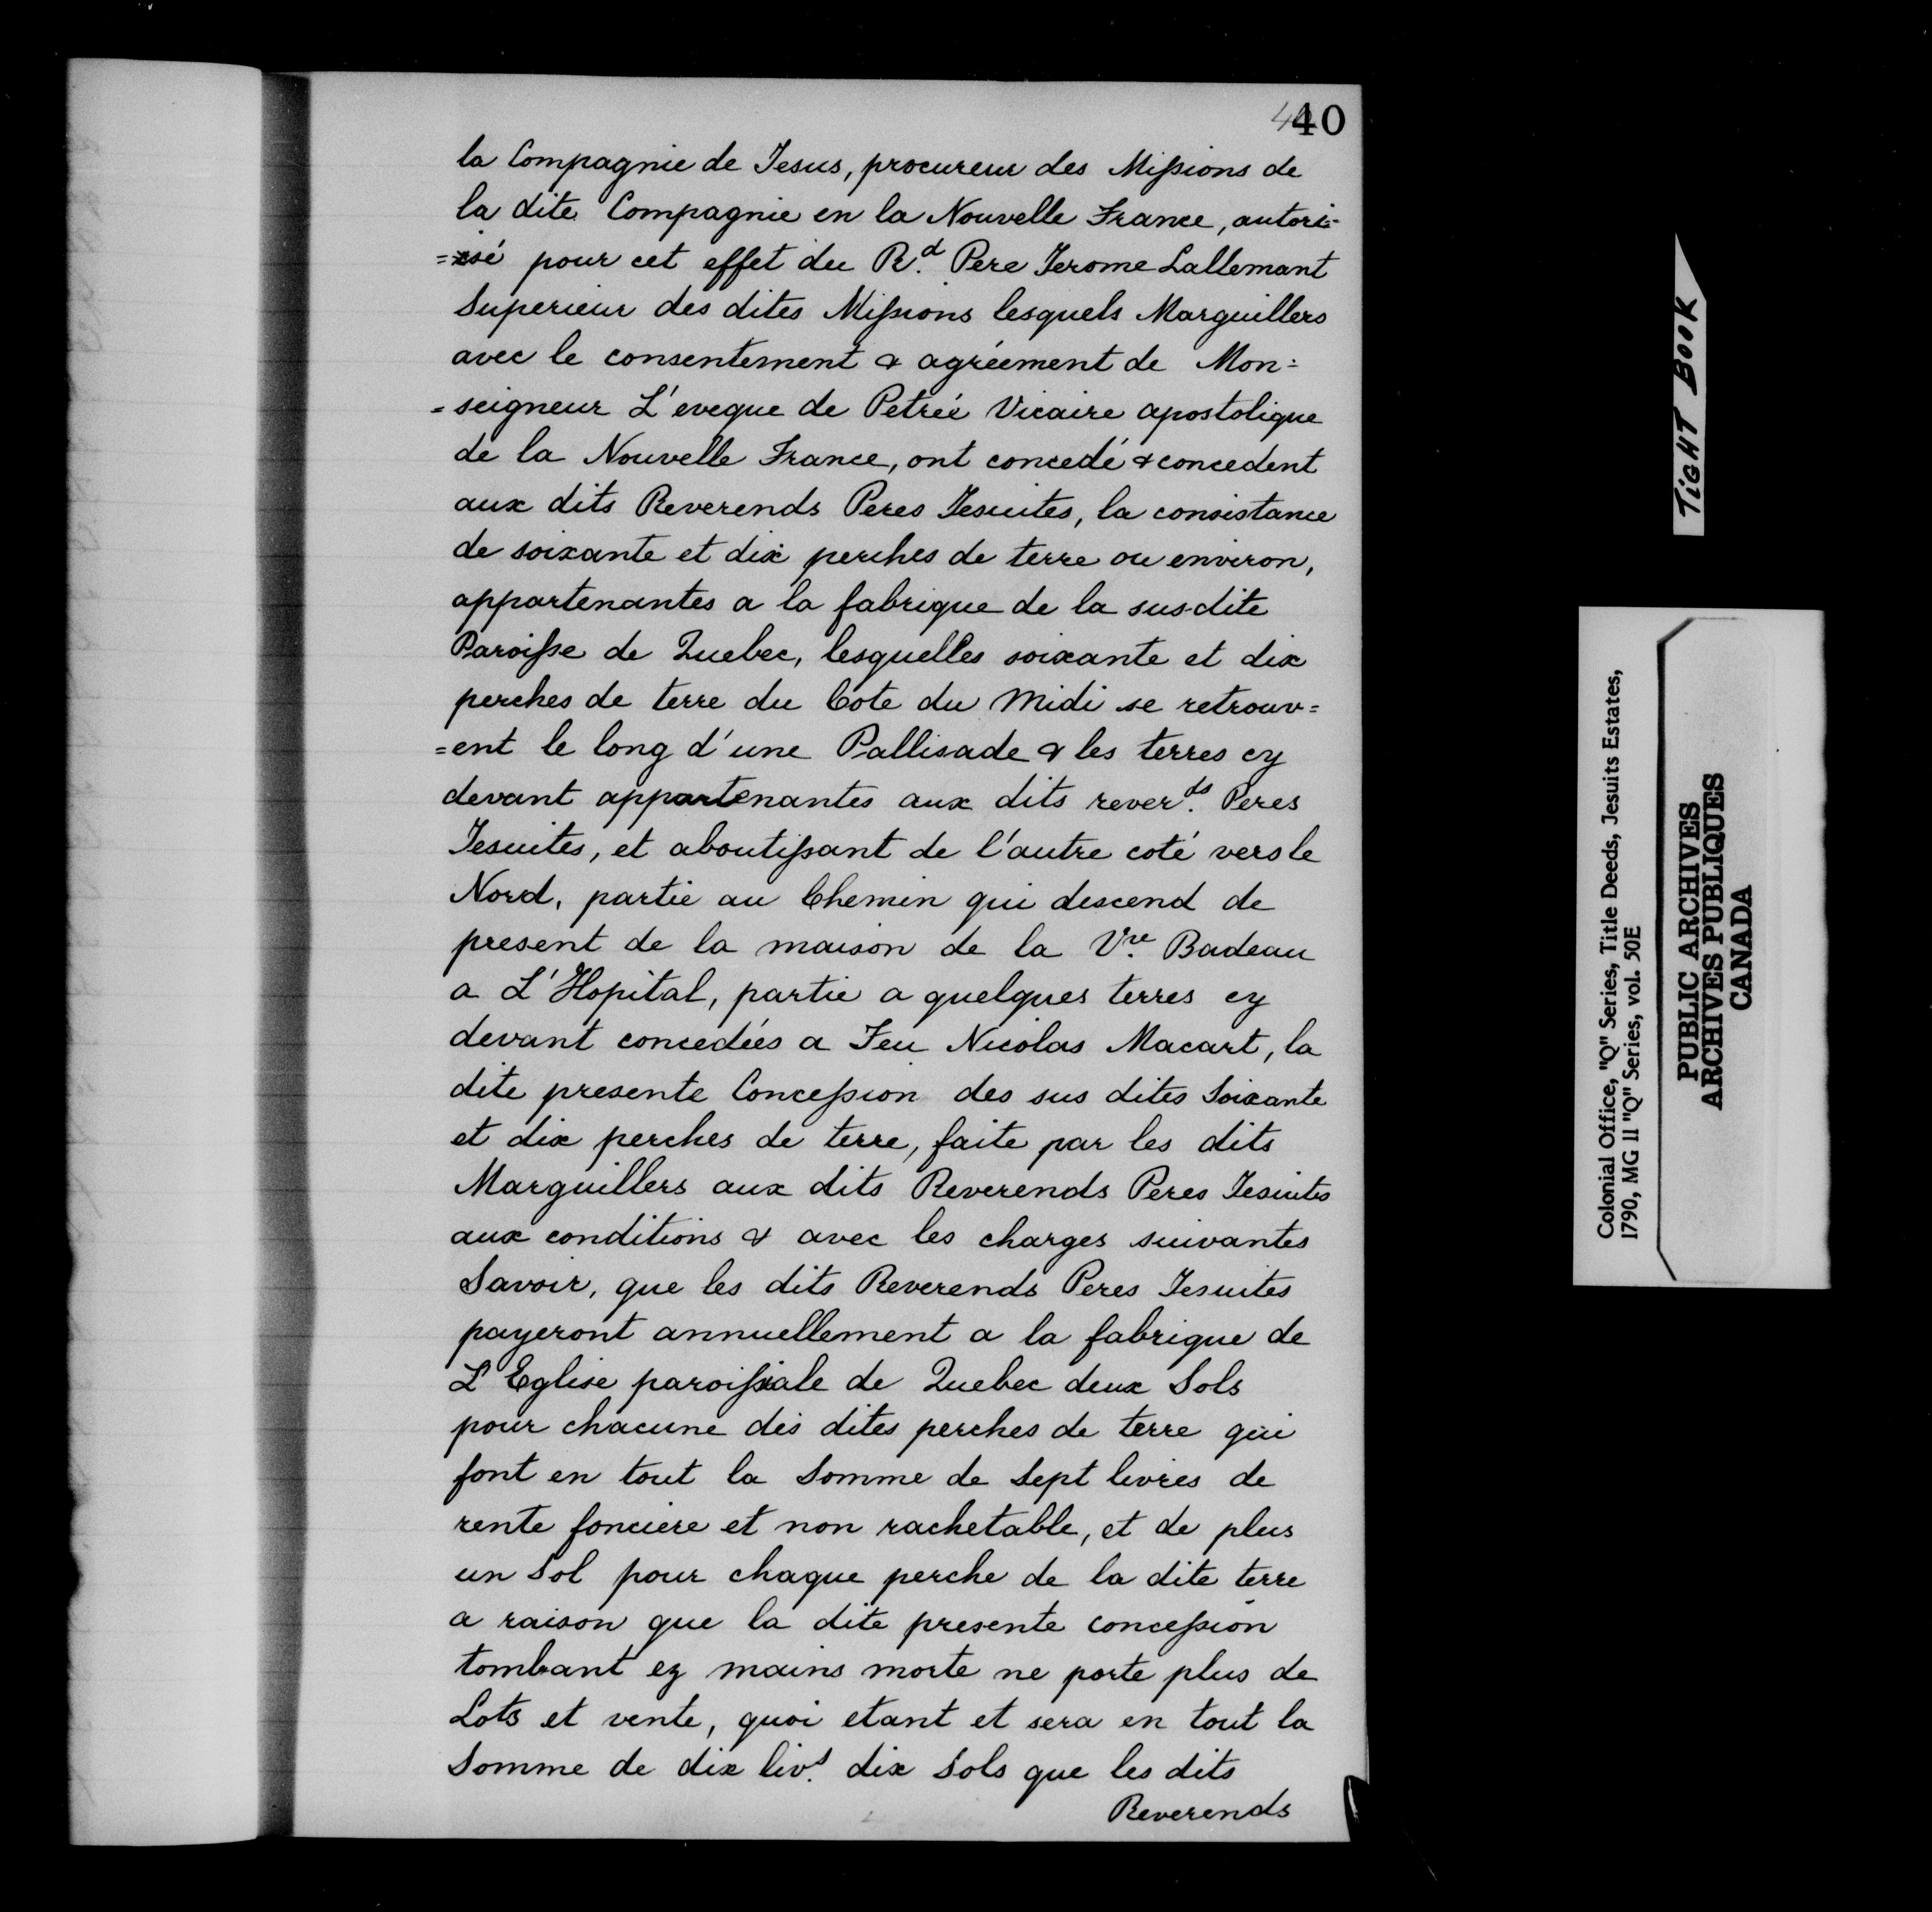 40
la Compagnie de Jesus, procureur des Mißions de
la dite Compagnie en la Nouvelle France, autori-
=sé pour cet effet du R.d Pere Jerome Lallemant
Superieur des dites Mißions lesquels Marguillers
avec le consentement & agréement de Mon=
=seigneur L'eveque de Petrée Vicaire apostolique
de la Nouvelle France, ont concedé & concedent
aux dits Reverends Peres Jesuites, la consistance
de soixante et dix perches de terre ou environ,
appartenantes a la fabrique de la susdite
Paroiße de Quebec, lesquelles soixante et dix
perches de terre du Cote du Midi se retrouv=
=ent le long d'une Pallisade & les terres cy
devant appartenantes aux dits rever.ds Peres
Jesuites, et aboutißant de l'autre coté vers le
Nord, partie au Chemin qui descend de
present de la maison de la V.ve Badeau
a L'Hopital, partie a quelques terres cy
devant concedées a Feu Nicolas Macart, la
dite presente Conceßion des sus dites Soixante
et dix perches de terre, faite par les dits
Marguillers aux dits Reverends Peres Jesuites
aux conditions & avec les charges suivantes
Savoir, que les dits Reverends Peres Jesuites
payeront annuellement a la fabrique de
L'Eglise paroißiale de Quebec deux Sols
pour chacune dés dites perches de terre qui
font en tout la Somme de Sept livres de
rente fonciere et non rachetable, et de plus
un Sol pour chaque perche de la dite terre
a raison que la dite presente conceßion
tombant ez mains morte ne porte plus de
Lots et vente, quoi etant et sera en tout la
Somme de dix liv.s dix Sols que les dits
Reverends
TIGHT BOOK
Colonial Office, "Q" Series, Title Deeds, Jesuits Estates,
1790, MG 11 "Q" Series, vol. 50E
PUBLIC ARCHIVES
ARCHIVES PUBLIQUES
CANADA